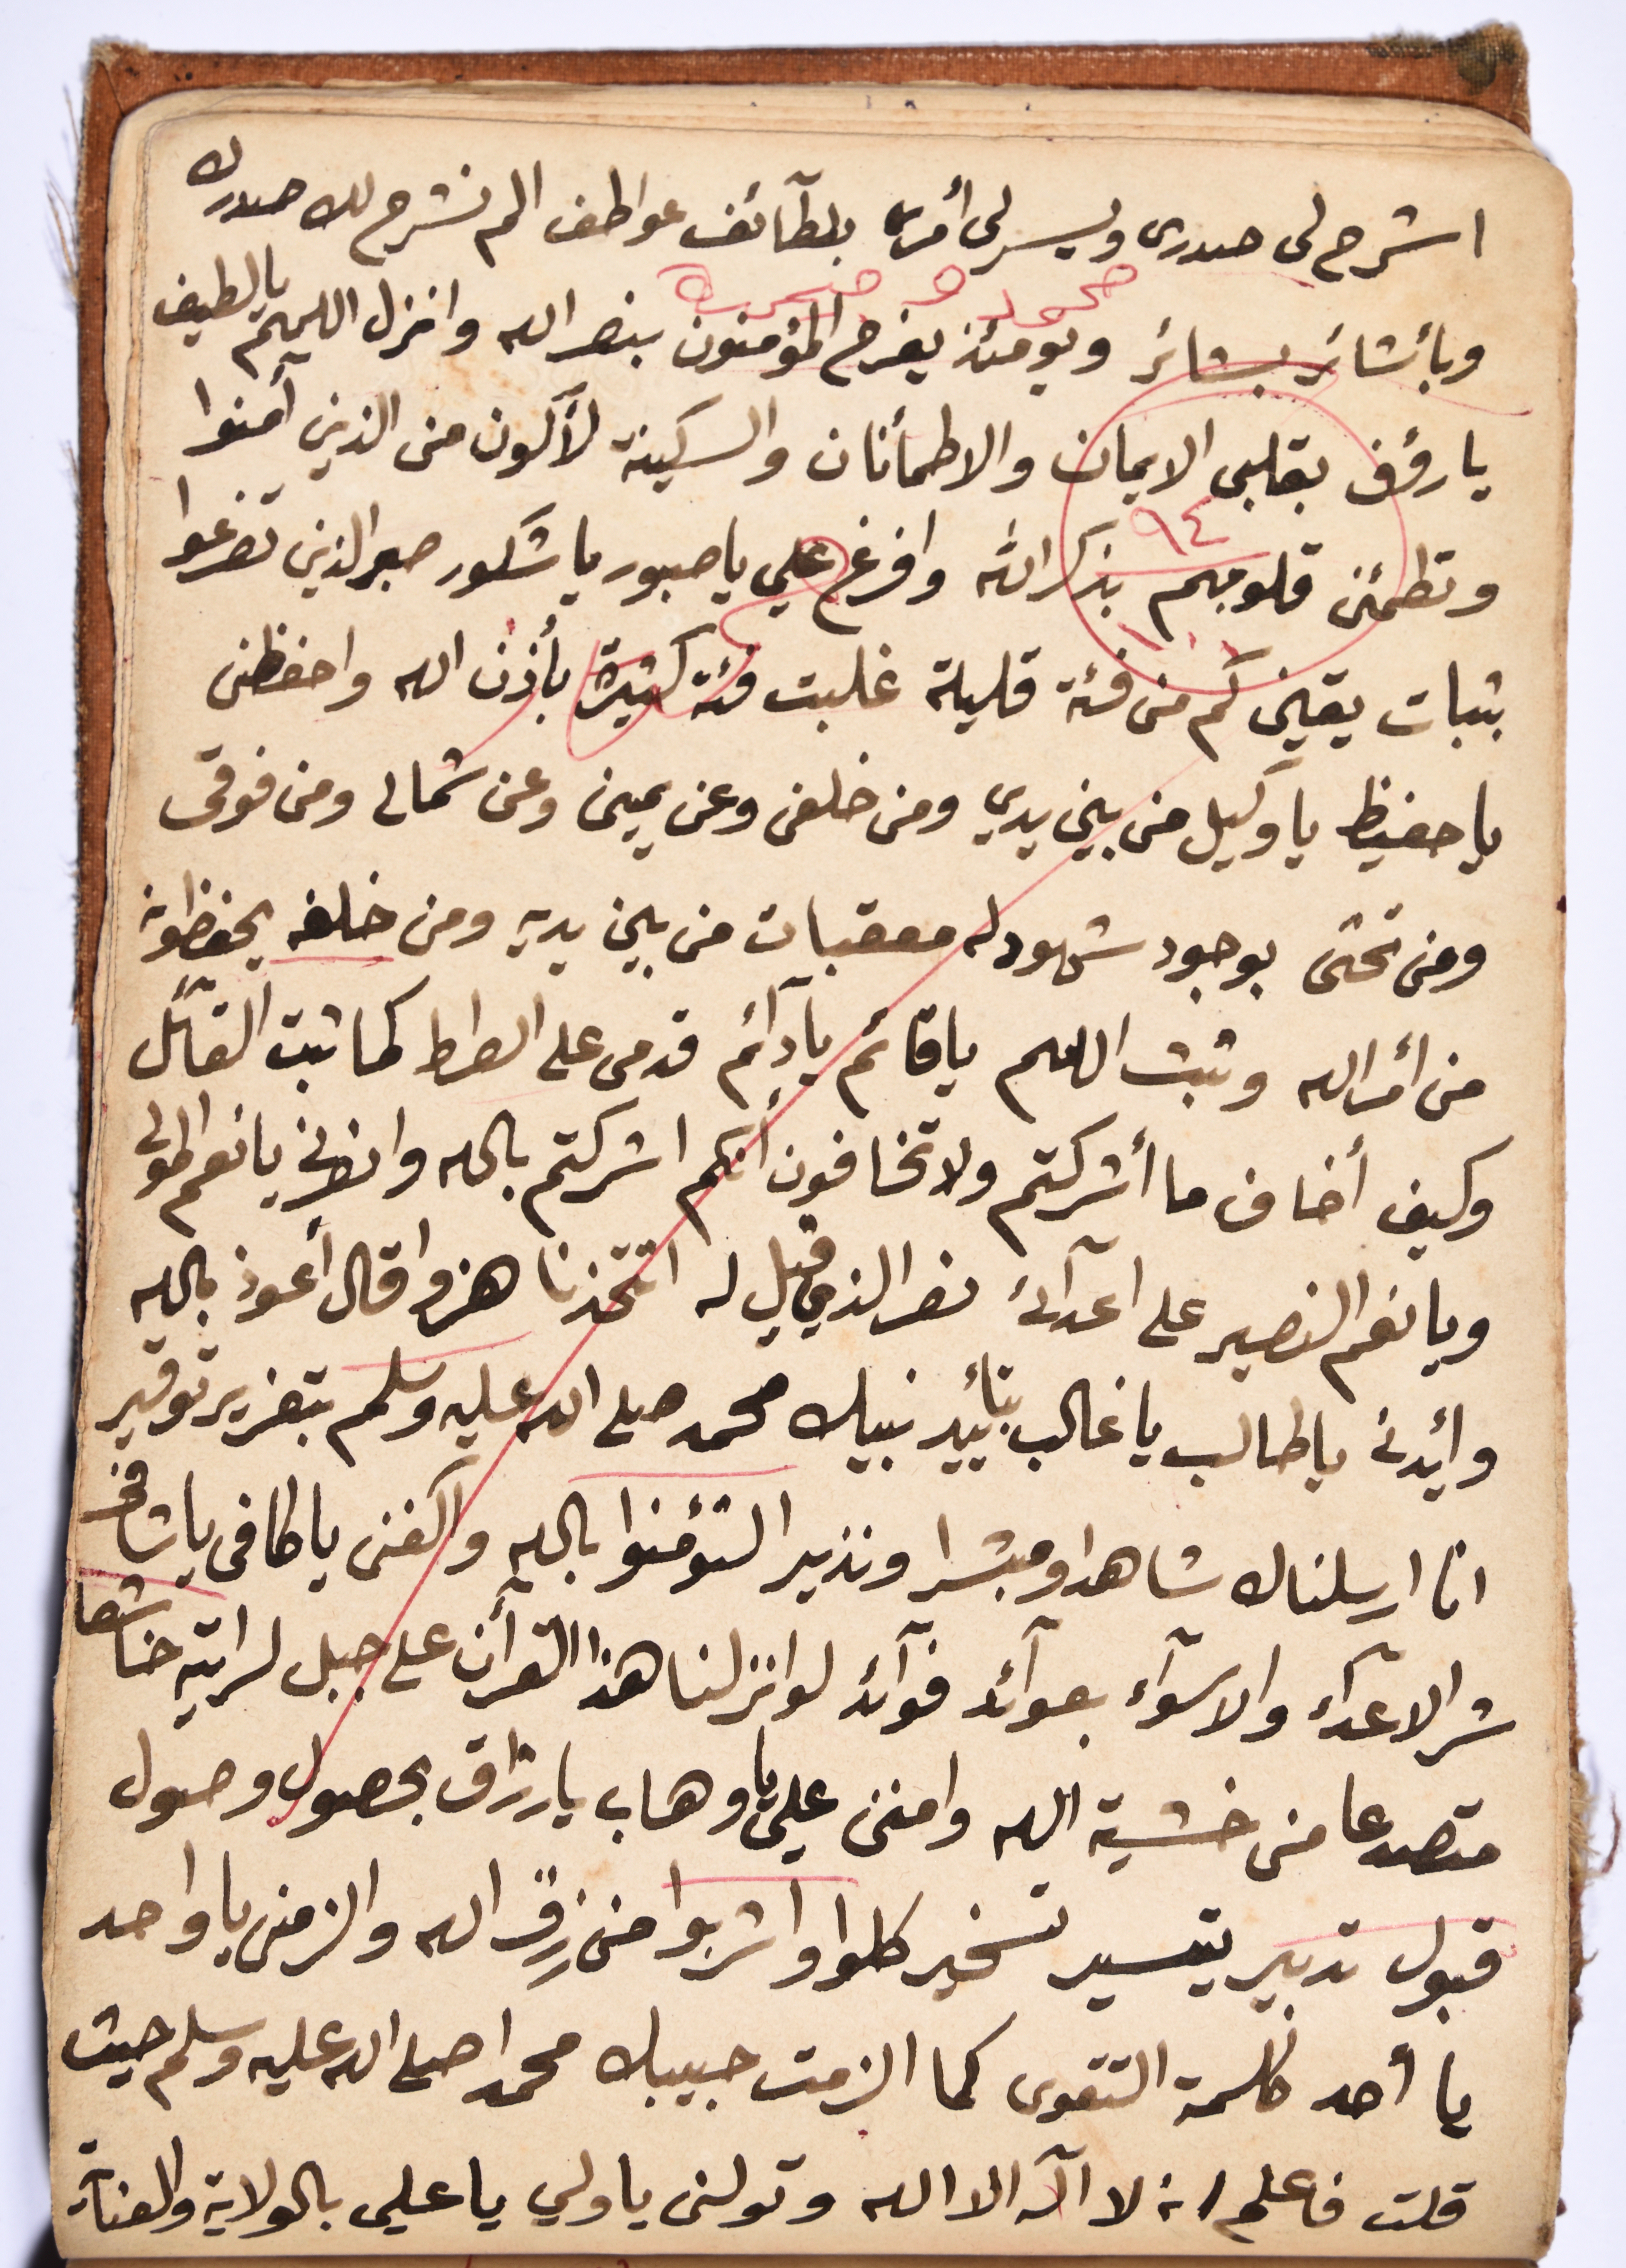 اشرح لى صدرى ويسر لى أمرى بلطآئف عواطف الم نشرح لك صدرك
وبأشائر بشائر ويومئذ يفرح المؤمنون بنصر الله وانزل اللهم يالطيف
يارؤف بقلبى الايمان والاطمأنان والسكينة لأكون من الذين آمنوا
٩٤
وتطمئن قلوبهم بذكر الله وافرغ علي ياصبور ياشكور صبر الذين تضرعوا
بثبات يقين كم من فئة قليلة غلبت فئة كثيرة بأذن الله واحفظنى
ياحفيظ ياوكيل من بين يدي ومن خلفى وعن يمينى وعن شمالى ومن فوقى
ومن تحتى بوجود شهود له معقبات من بين يديه ومن خلفه يحفظونه
من أمر الله وثبت اللهم ياقائم يادآئم قدمى على الصراط كما ثبت القآئل
وكيف أخاف ما أشركتم ولا تخافون أنكم اشركتم بالله وانصرنى يانعم المولى
ويانعم النصير على اعدآئ نصر الذي قيل له اتتخذنا هزوا قال أعوذ بالله
وأيدنى ياطالب ياغالب بتأييد نبيك محمد صلى الله عليه وسلم بتعزير توقير
انا ارسلناك شاهدا ومبشرا ونذيرا لتؤمنوا بالله واكفنى ياكافى ياشافى
شر الاعدآء والاسوآء بعوآئد فوآئد لو انزلنا هذا القرأن على جبل لرايته خاشعا
متصدعا من خشية الله وامنن علي ياوهاب يارزاق بحصول وصول
قبول تدبير تيسير تسخير كلوا واشربوا من رزق الله والزمنى ياواحد
يا أحد كلمة التقوى كما الزمت حبيبك محمدا صلى الله عليه وسلم حيث
قلت فاعلم انه لا اله الا الله وتولنى ياولي ياعلى بالولاية والعناية